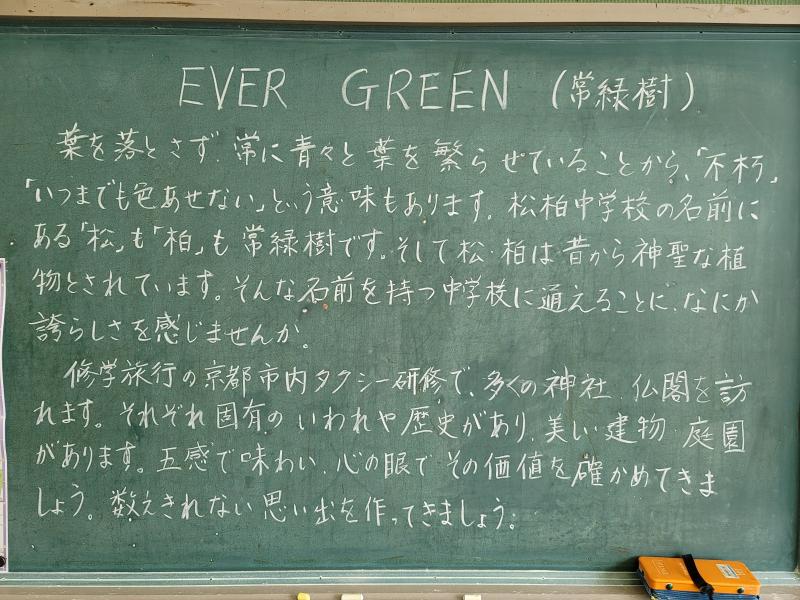 EVER GREEN (常緑樹)
葉を落とさず、常に青々と葉を繁らせていることから、「不朽」
「いつまでも色あせない」という意味もあります。松柏中学校の名前に
ある「松」も「柏」も常緑樹です。そして松・柏は昔から神聖な植
物とされています。そんな名前を持つ中学校に通えることに、なにか
誇らしさを感じませんか。
修学旅行の京都市内タクシー研修で、多くの神社、仏閣を訪
れます。それぞれ固有のいわれや歴史があり、美しい建物、庭園
があります。五感で味わい、心の眼でその価値を確かめてきま
しょう。数えきれない思い出を作ってきましょう。